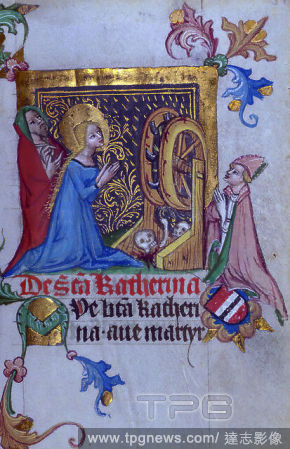 De s̄ca Katherina
Ave bt̄a katheri
na · aue martyr
TPG
www.tpgnews.com/ 達志影像